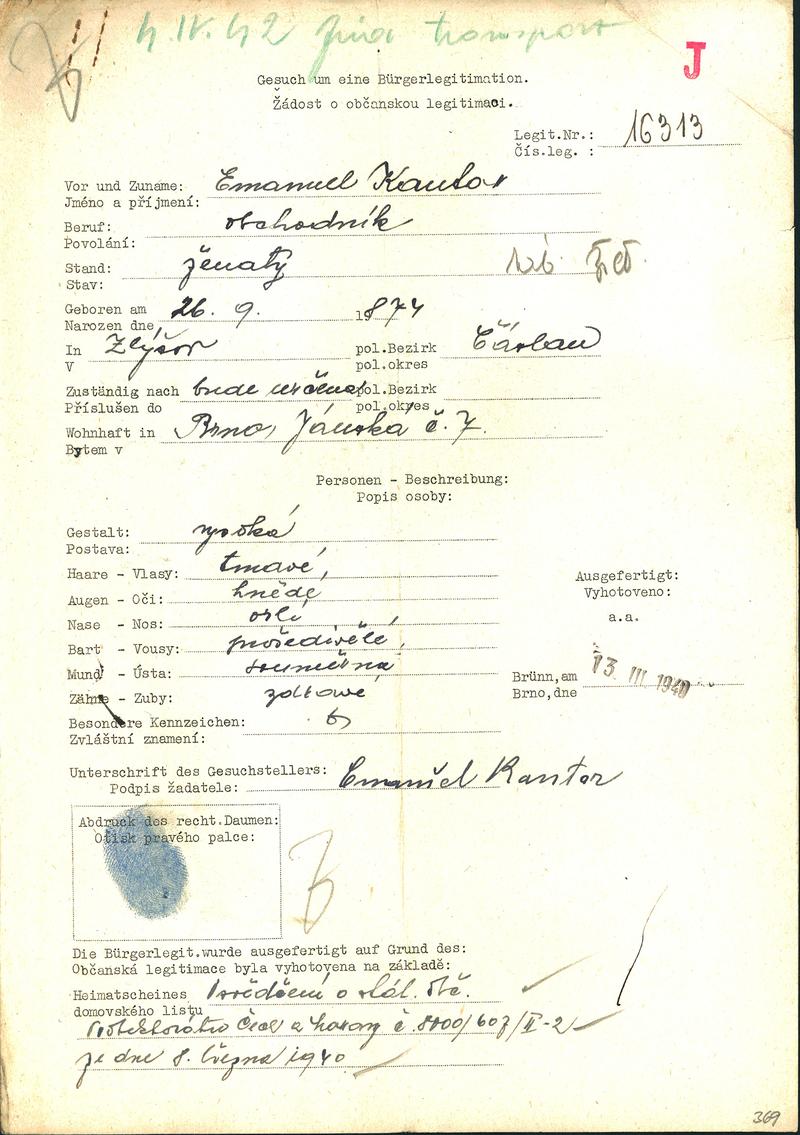 4.IV.42 transport
J
Gesuch um eine Bürgerlegitimation.
Žádost o občanskou legitimaci.
Legit.Nr.: 16313
Čís.leg. :
Vor und Zuname: Emanuel Kantor
Jméno a příjmení:
Beruf: obchodník
Povolání:
Stand: ženatý
Stav:
Geboren am 26. 9. 1874
Narozen dne
In pol.Bezirk Čáslau
V pol.okres
Zuständig nach bude určena pol.Bezirk
Příslušen do pol.okres
Wohnhaft in Brno, Jánská č. 7.
Bytem v
Personen - Beschreibung:
Popis osoby:
Gestalt: vysoká
Postava:
Haare - Vlasy: tmavé,
Ausgefertigt:
Augen - Oči: hnědé,
Vyhotoveno:
Nase - Nos: orlí,
a.a.
Bart - Vousy: prošedivělé,
Mund - Ústa: souměrná
Brünn,am 13 III 1940
Zähne - Zuby: zdravé,
Brno,dne
Besondere Kennzeichen:
Zvláštní znamení:
Unterschrift des Gesuchstellers: Emanuel Kantor
Podpis žadatele:
Abdruck des recht.Daumen:
Otisk pravého palce:
Die Bürgerlegit.wurde ausgefertigt auf Grund des:
Občanská legitimace byla vyhotovena na základě:
Heimatscheines osvědčení o stát. obč.
domovského listu
Protektorátu Čech a Moravy č. 8000/607/II-2
ze dne 8. března 1940
369